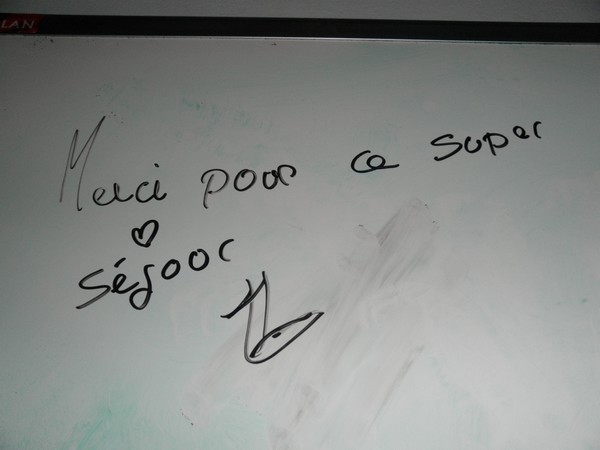 LAN
Merci pour ce super
séjour